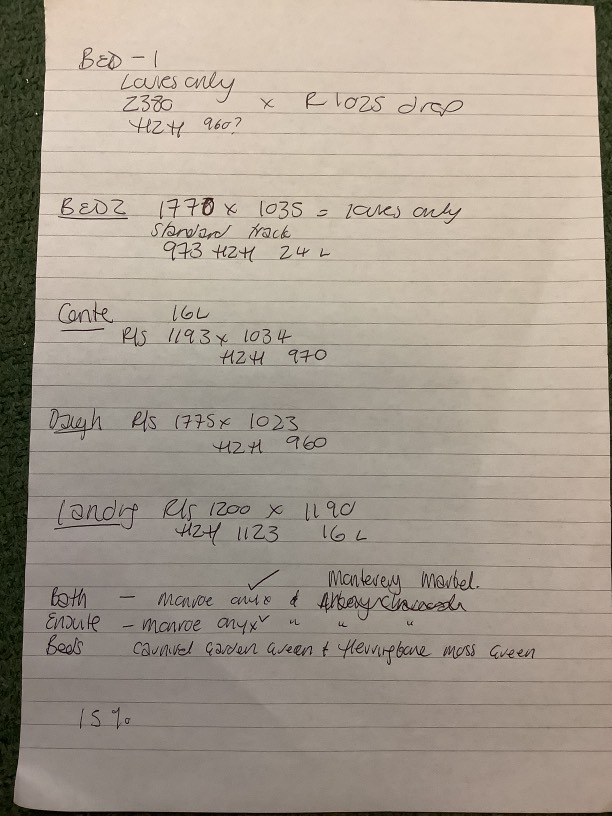 BED - 1
Louvres only
2380 x R 1025 drop
H2H 960?
BED 2 1770 x 1035 = louvres only
Standard track
973 H2H 24 L
Centre 16L
R/s 1193 x 1034
H2H 970
R/s 1775 x 1023
H2H 960
Landing R/s 1200 x 1190
H2H 1123 16 L
Monterey Marbel.
Bath - Monroe onyx ✓ &
Ensuite - Monroe onyx ✓ " " "
Beds Carnival Garden Green + Herringbone moss Green
15 %